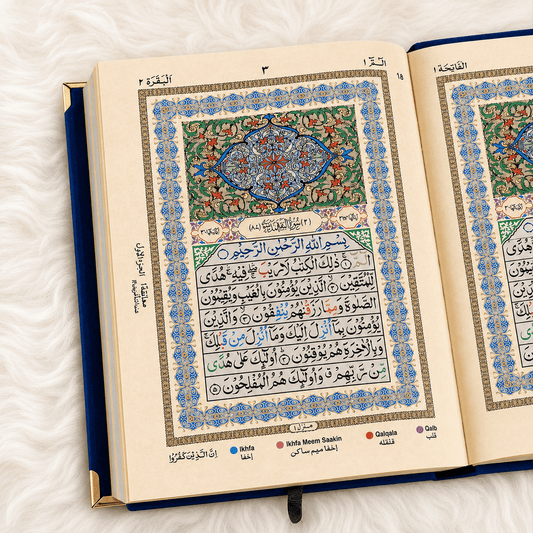 اَلْبَقَرَة ٢
٣
الٓمّٓ ١
بِسْمِ اللّٰهِ الرَّحْمٰنِ الرَّحِيْمِ
الٓمّٓ ۚ ① ذٰلِكَ الْكِتٰبُ لَا رَيْبَ فِيْهِ هُدًى
لِّلْمُتَّقِيْنَ ② الَّذِيْنَ يُؤْمِنُوْنَ بِالْغَيْبِ وَيُقِيْمُوْنَ
الصَّلٰوةَ وَمِمَّا رَزَقْنٰهُمْ يُنْفِقُوْنَ ③ وَالَّذِيْنَ
يُؤْمِنُوْنَ بِمَآ اُنْزِلَ اِلَيْكَ وَمَآ اُنْزِلَ مِنْ قَبْلِكَ
وَبِالْاٰخِرَةِ هُمْ يُوْقِنُوْنَ ④ اُولٰٓئِكَ عَلٰى هُدًى
مِّنْ رَّبِّهِمْ وَاُولٰٓئِكَ هُمُ الْمُفْلِحُوْنَ ⑤
منزل ١
معانقة ١ الجزء الاول
اِنَّ الَّذِيْنَ كَفَرُوْا
Ikhfa
إخفا
Ikhfa Meem Saakin
إخفا ميم ساكن
Qalqala
قلقله
Qalb
قلب
اَلْفَاتِحَة ١